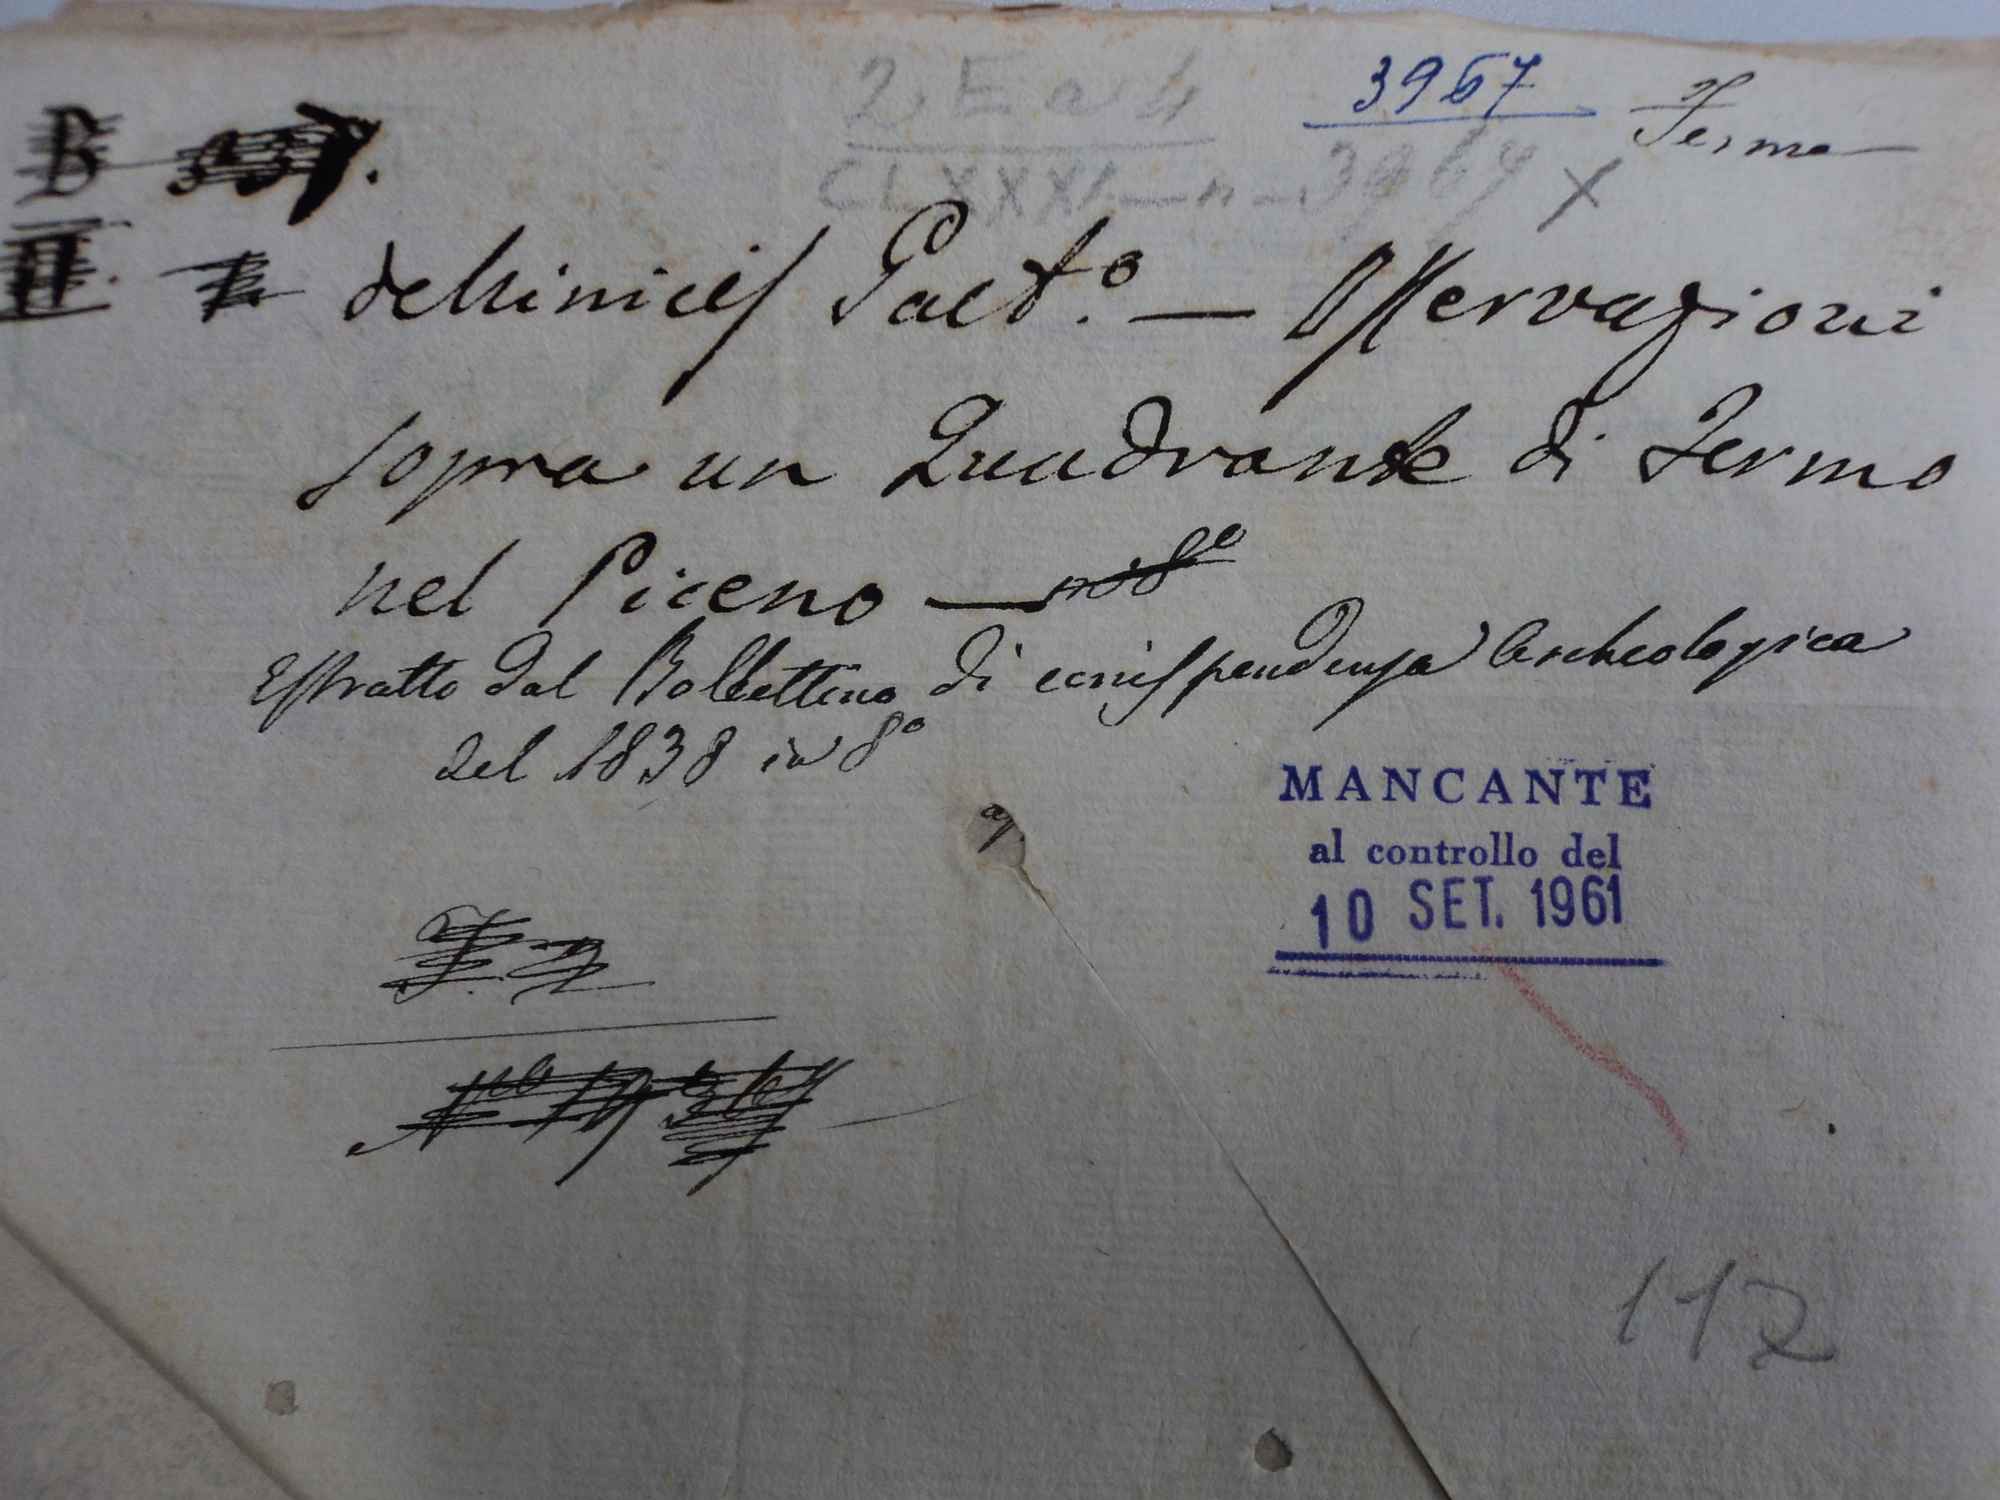 2 E a 4
3967
Fermo
CLXXXI — n — 3967 X
B
II
deMinicis Gaet.º — Osservazioni
sopra un Quadrante di Fermo
nel Piceno — in 8º
Estratto dal Bollettino di corrispondenza Archeologica
del 1838 in 8º
MANCANTE
al controllo del
10 SET. 1961
112